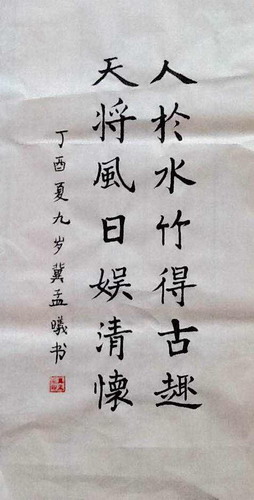 人於水竹得古趣
天将風日娱清懷
丁酉夏九岁冀孟曦书